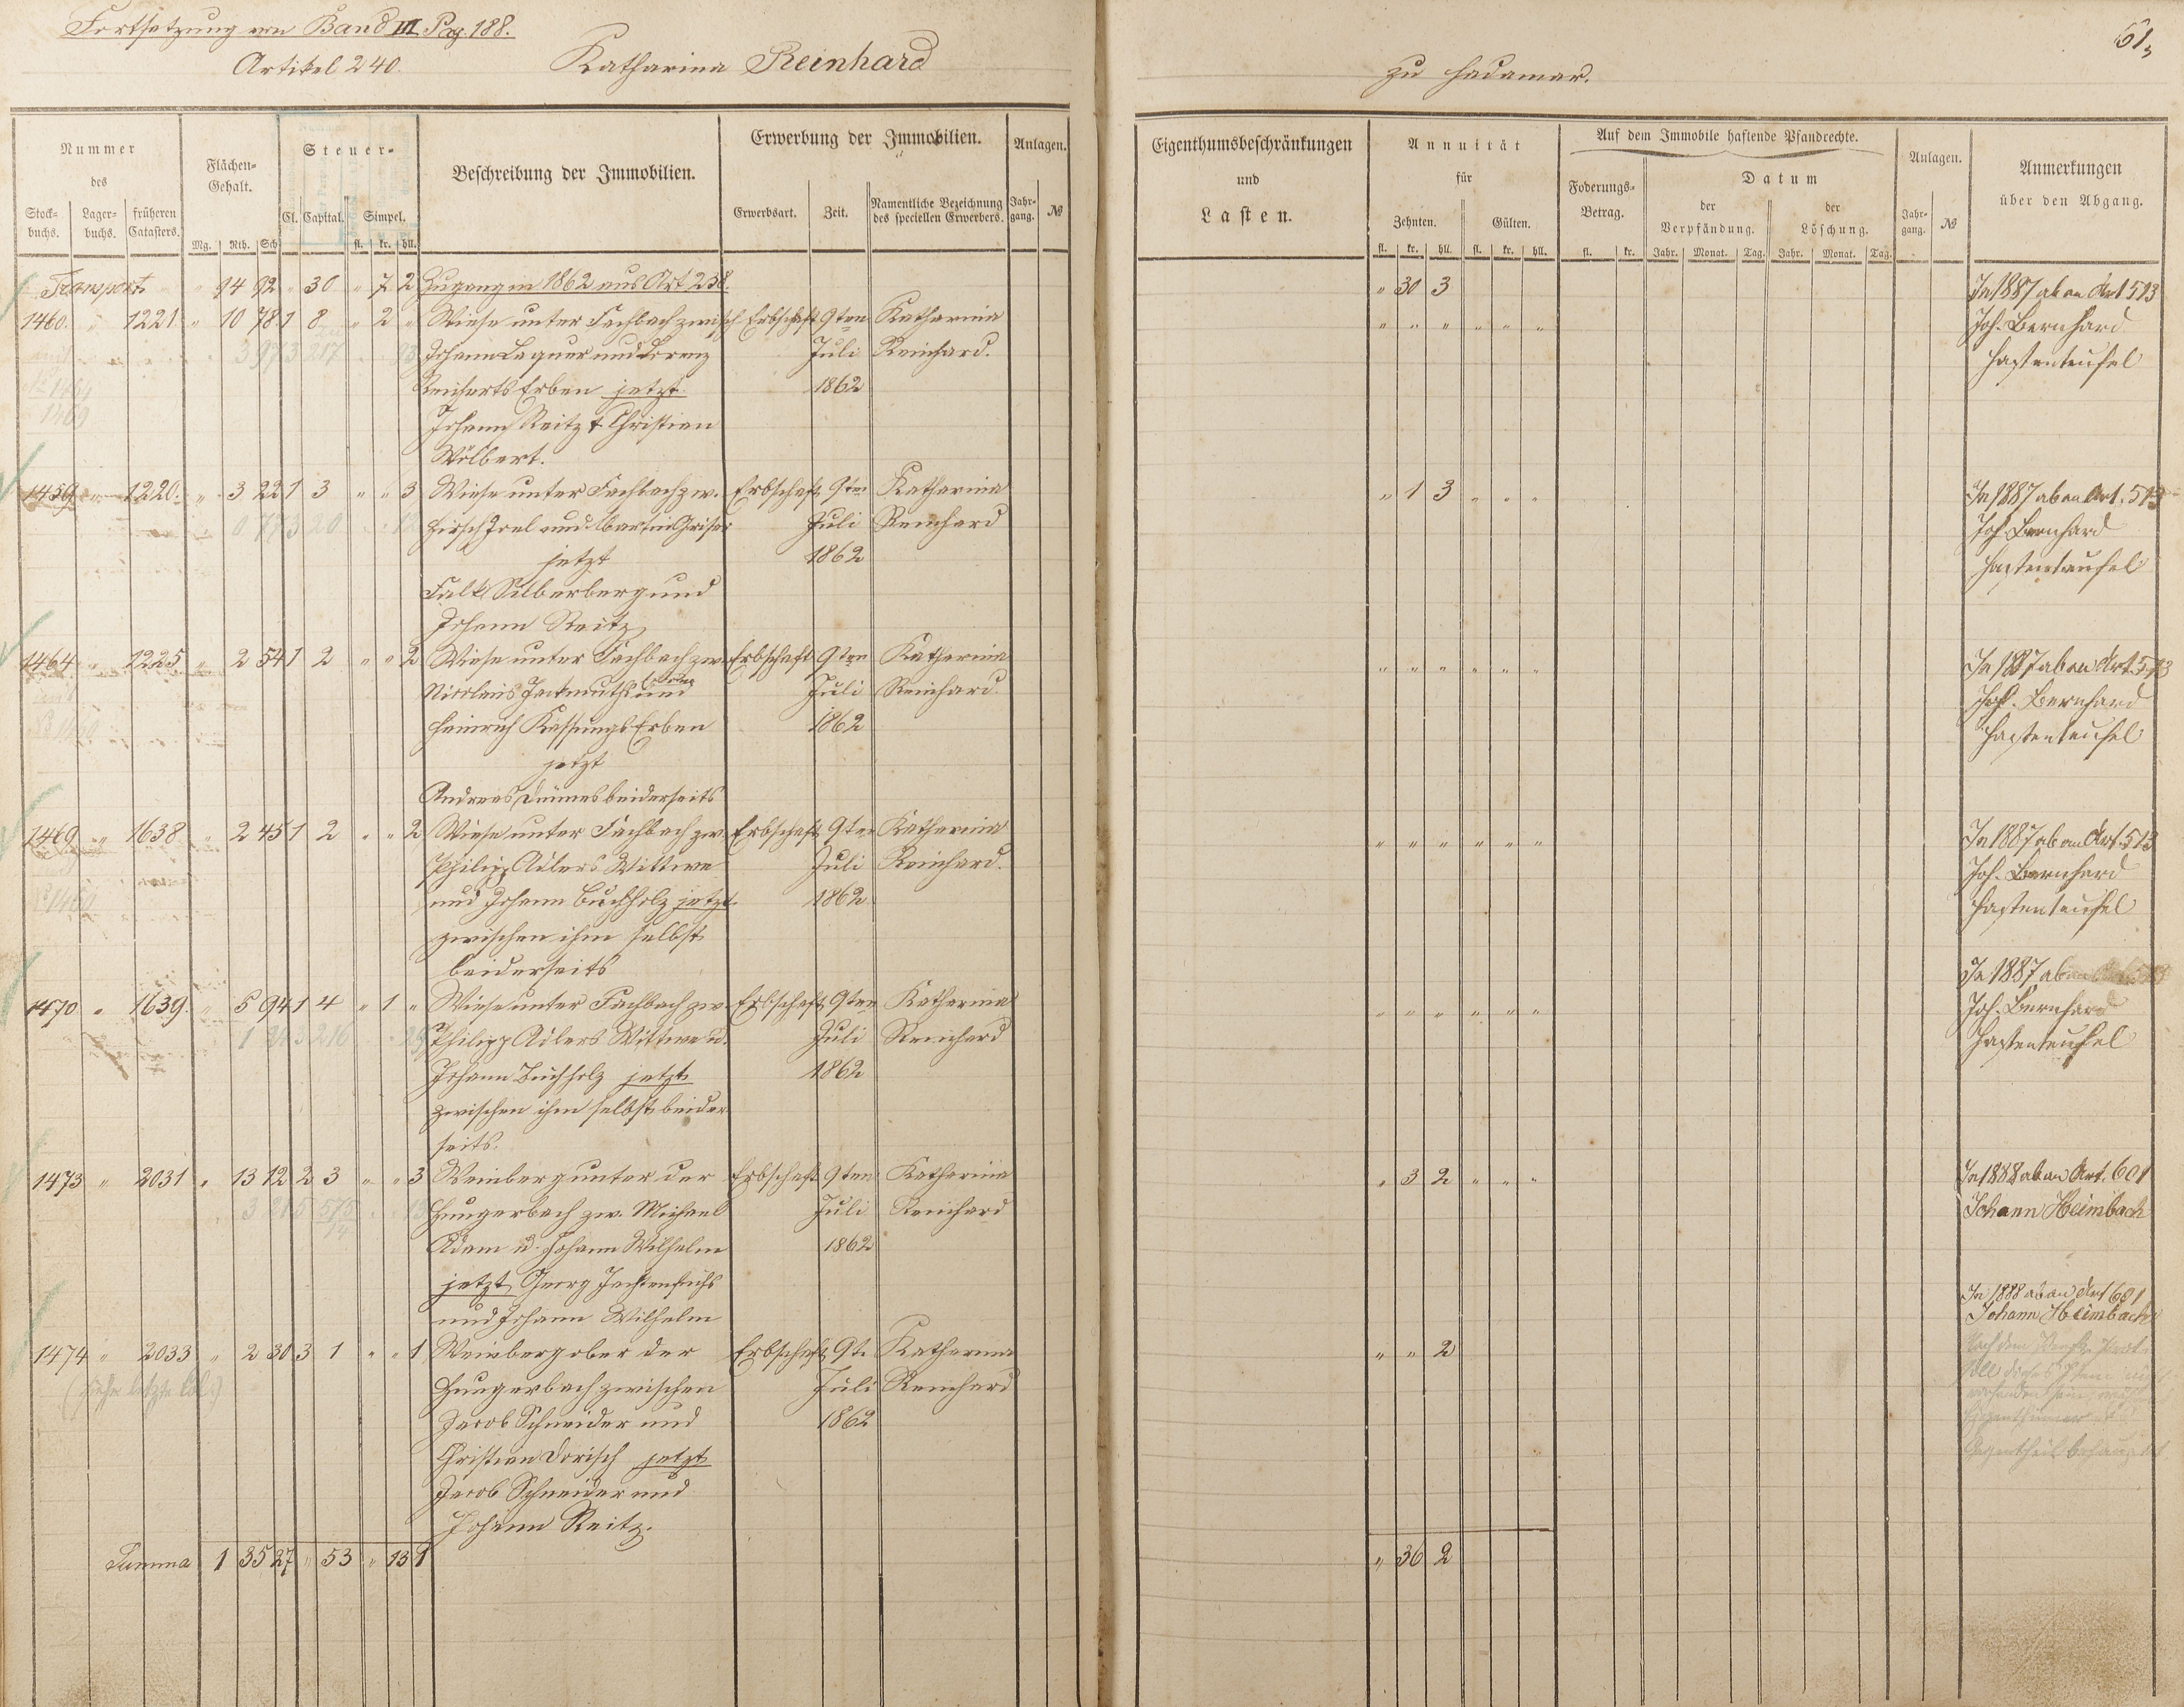 Fortsetzung von Band III Pag. 188.
Artikel 240. Katharina Reinhard
zu Hadamar.
61
Nummer des
Stockbuchs. Lagerbuchs. früheren Catasters.
Flächen-Gehalt.
Mg. Rth. Sch
Steuer-
Cl. Capital. Simpel.
fl. kr. hll.
Beschreibung der Immobilien.
Erwerbung der Immobilien.
Erwerbsart. Zeit. Namentliche Bezeichnung des speciellen Erwerbers.
Anlagen.
Jahrgang. №
Eigenthumsbeschränkungen
und
Lasten.
Annuität
für
Zehnten. Gülten.
fl. kr. hll. fl. kr. hll.
Auf dem Immobile haftende Pfandrechte.
Foderungs-Betrag.
fl. kr.
Datum
der Verpfändung. der Löschung.
Jahr. Monat. Tag. Jahr. Monat. Tag.
Anlagen.
Jahrgang. №
Anmerkungen
über den Abgang.
Transport " 94 92 " 30 " 7 2 Zugang in 1862 aus Art 238. " 30 3 In 1887 ab an Art 513
1460. " 1221 " 10 78 1 8 " 2 " Wiese unter Fachbach zwisch Erbschaft 9ten Katharina " " " " " " Joh. Bernhard
Johann Laquer und Lorenz Juli Reinhard. Hastenteufel
Reicharts Erben jetzt 1862
Johann Reitz & Christian
Wölbert.
1459 " 1220. " 3 22 1 3 " " 3 Wiese unter Fachbach zw. Erbschaft 9ten Katharina " 1 3 " " " In 1887 ab an Art. 513
Hirsch Joel und Juli Reinhard Joh. Bernhard
jetzt 1862 Hastenteufel
Falk Silberberg und
Johann Reitz
1464 " 1225 " 2 54 1 2 " " 2 Wiese unter Fachbach zw. Erbschaft 9ten Katharina " " " " " " In 1887 ab an Art. 513
Nicolaus und Juli Reinhard. Joh. Bernhard
Heinrich Erben 1862 Hastenteufel
jetzt
Andreas beiderseits
1469 " 1638 " 2 45 1 2 " " 2 Wiese unter Fachbach zw. Erbschaft 9ten Katharina " " " " " " In 1887 ab an Art. 513
Philipp Adlers Wittwe Juli Reinhard. Joh. Bernhard
und Johann Buchholz jetzt 1862 Hastenteufel
zwischen ihm selbst
beiderseits
1470 " 1639. " 5 94 1 4 " 1 " Wiese unter Fachbach zw Erbschaft 9ten Katharina " " " " " " In 1887 ab an
Philipp Adlers Wittwe u. Juli Reinhard Joh. Bernhard
Johann Buchholz jetzt 1862 Hastenteufel
zwischen ihm selbst beider
seits.
1473 " 2031 " 13 12 2 3 " " 3 Weinberg unter der Erbschaft 9ten Katharina " 3 2 " " " In 1888 ab an Art. 601
Hungerbach zw. Michael Juli Reinhard Johann Heimbach
Adam u. Johann Wilhelm 1862
jetzt Georg
und Johann Wilhelm
In 1888 ab an Art 601
Johann Heimbach
1474 " 2033 " 2 30 3 1 " " 1 Weinberg ober der Erbschaft 9te Katharina " " 2
Hungerbach zwischen Juli Reinhard
Jacob Schneider und 1862
Christian Dorisch jetzt
Jacob Schneider und
Johann Reitz.
Summa 1 35 27 " 53 " 13 1 " 36 2